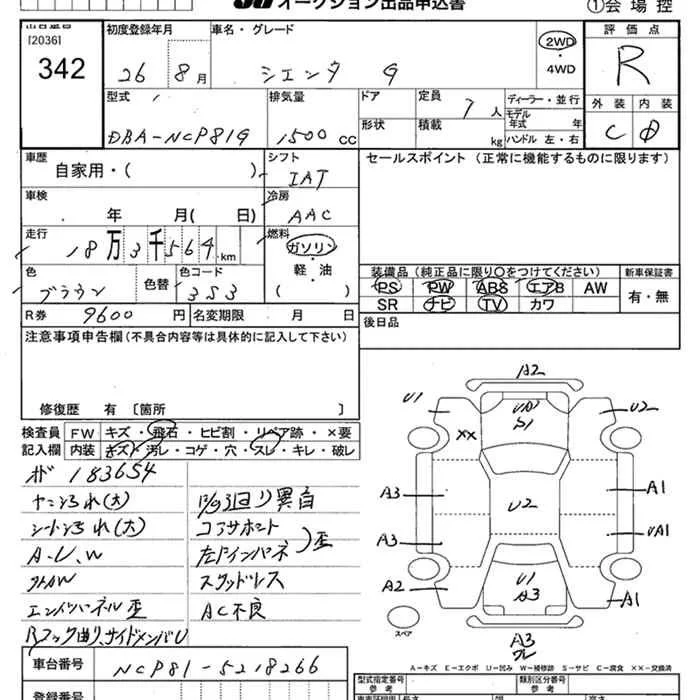 オークション出品申込書
①会場控
出品番号
[2036]
342
初度登録年月
26 8月
車名・グレード
シエンタ G
2WD
・
4WD
評価点
R
型式
DBA-NCP81G
排気量
1500 CC
ドア
形状
定員
7人
積載
kg
ディーラー・並行
モデル年式 年式
ハンドル 左・右
外装 内装
C D
車歴
自家用・( )
シフト
IAT
セールスポイント (正常に機能するものに限ります)
車検
年 月( 日)
冷房
AAC
走行
18万3千564km
燃料
ガソリン
・
軽・油
( )
色
ブラウン
色替
色コード
3S3
装備品 (純正品に限り○をつけてください)
新車保証書
PS PW ABS エアB AW
SR ナビ TV カワ
有・無
R券 9600円
名変期限 月 日
後日品
注意事項申告欄 (不具合内容等は具体的に記入して下さい)
修復歴 有 〔箇所 〕
検査員
記入欄
FW キズ・飛石・ヒビ割・リペア跡・×要
内装 キズ・汚レ・コゲ・穴・スレ・キレ・破レ
183654
(大)
シート (大)
A・U、W
エンドパネル歪
Rフック曲り、サイドメンバU
異音
コアサポート
左ドインパネ
歪
スタッドレス
AC不良
A2
U1
U2
S1
XX
U2
A3
A1
U2
A3
UA1
A2
U1
A3
A1
スペア
A3
ワレ
A-キズ E-エクボ U-凹み W-補修跡 S-サビ C-腐食 XX-交換済
車台番号 NCP81-5218266
登録番号
型式指定番号
参考
類別区分番号
参考